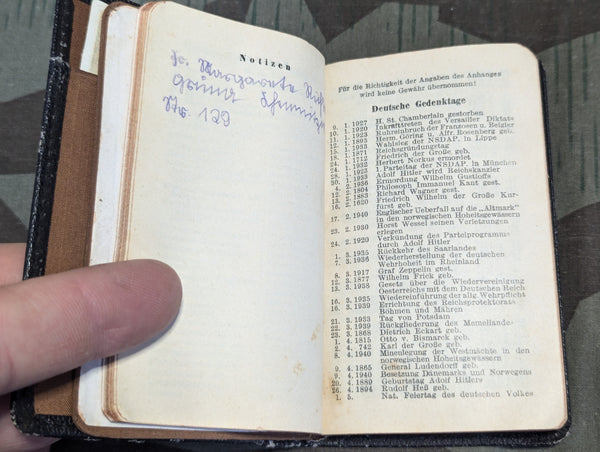 Notizen
Fr. Margarete
Grüna
Nr. 129
Für die Richtigkeit der Angaben des Anhanges
wird keine Gewähr übernommen!
Deutsche Gedenktage
9. 1. 1927 H. St. Chamberlain gestorben
10. 1. 1920 Inkrafttreten des Versailler Diktats
11. 1. 1923 Ruhreinbruch der Franzosen u. Belgier
12. 1. 1893 Herm. Göring u. Alfr. Rosenberg geb.
15. 1. 1933 Wahlsieg der NSDAP. in Lippe
18. 1. 1871 Reichsgründungstag
24. 1. 1712 Friedrich der Große geb.
24. 1. 1932 Herbert Norkus ermordet
28. 1. 1923 1. Parteitag der NSDAP. in München
30. 1. 1933 Adolf Hitler wird Reichskanzler
4. 2. 1936 Ermordung Wilhelm Gustloffs
12. 2. 1804 Philosoph Immanuel Kant gest.
13. 2. 1883 Richard Wagner gest.
16. 2. 1620 Friedrich Wilhelm der Große Kur-
fürst geb.
17. 2. 1940 Englischer Ueberfall auf die „Altmark"
in den norwegischen Hoheitsgewässern
23. 2. 1930 Horst Wessel seinen Verletzungen
erlegen
24. 2. 1920 Verkündung des Parteiprogramms
durch Adolf Hitler
1. 3. 1935 Rückkehr des Saarlandes
7. 3. 1936 Wiederherstellung der deutschen
Wehrhoheit im Rheinland
8. 3. 1917 Graf Zeppelin gest.
12. 3. 1877 Wilhelm Frick geb.
13. 3. 1938 Gesetz über die Wiedervereinigung
Oesterreichs mit dem Deutschen Reich
16. 3. 1935 Wiedereinführung der allg. Wehrpflicht
16. 3. 1939 Errichtung des Reichsprotektorats
Böhmen und Mähren
21. 3. 1933 Tag von Potsdam
22. 3. 1939 Rückgliederung des Memellande-
23. 3. 1868 Dietrich Eckart geb.
1. 4. 1815 Otto v. Bismarck geb.
2. 4. 742 Karl der Große geb.
8. 4. 1940 Minenlegung der Westmächte in den
norwegischen Hoheitsgewässern
9. 4. 1865 General Ludendorff geb.
9. 4. 1940 Besetzung Dänemarks und Norwegens
20. 4. 1889 Geburtstag Adolf Hitlers
26. 4. 1894 Rudolf Heß geb.
1. 5. Nat. Feiertag des deutschen Volkes